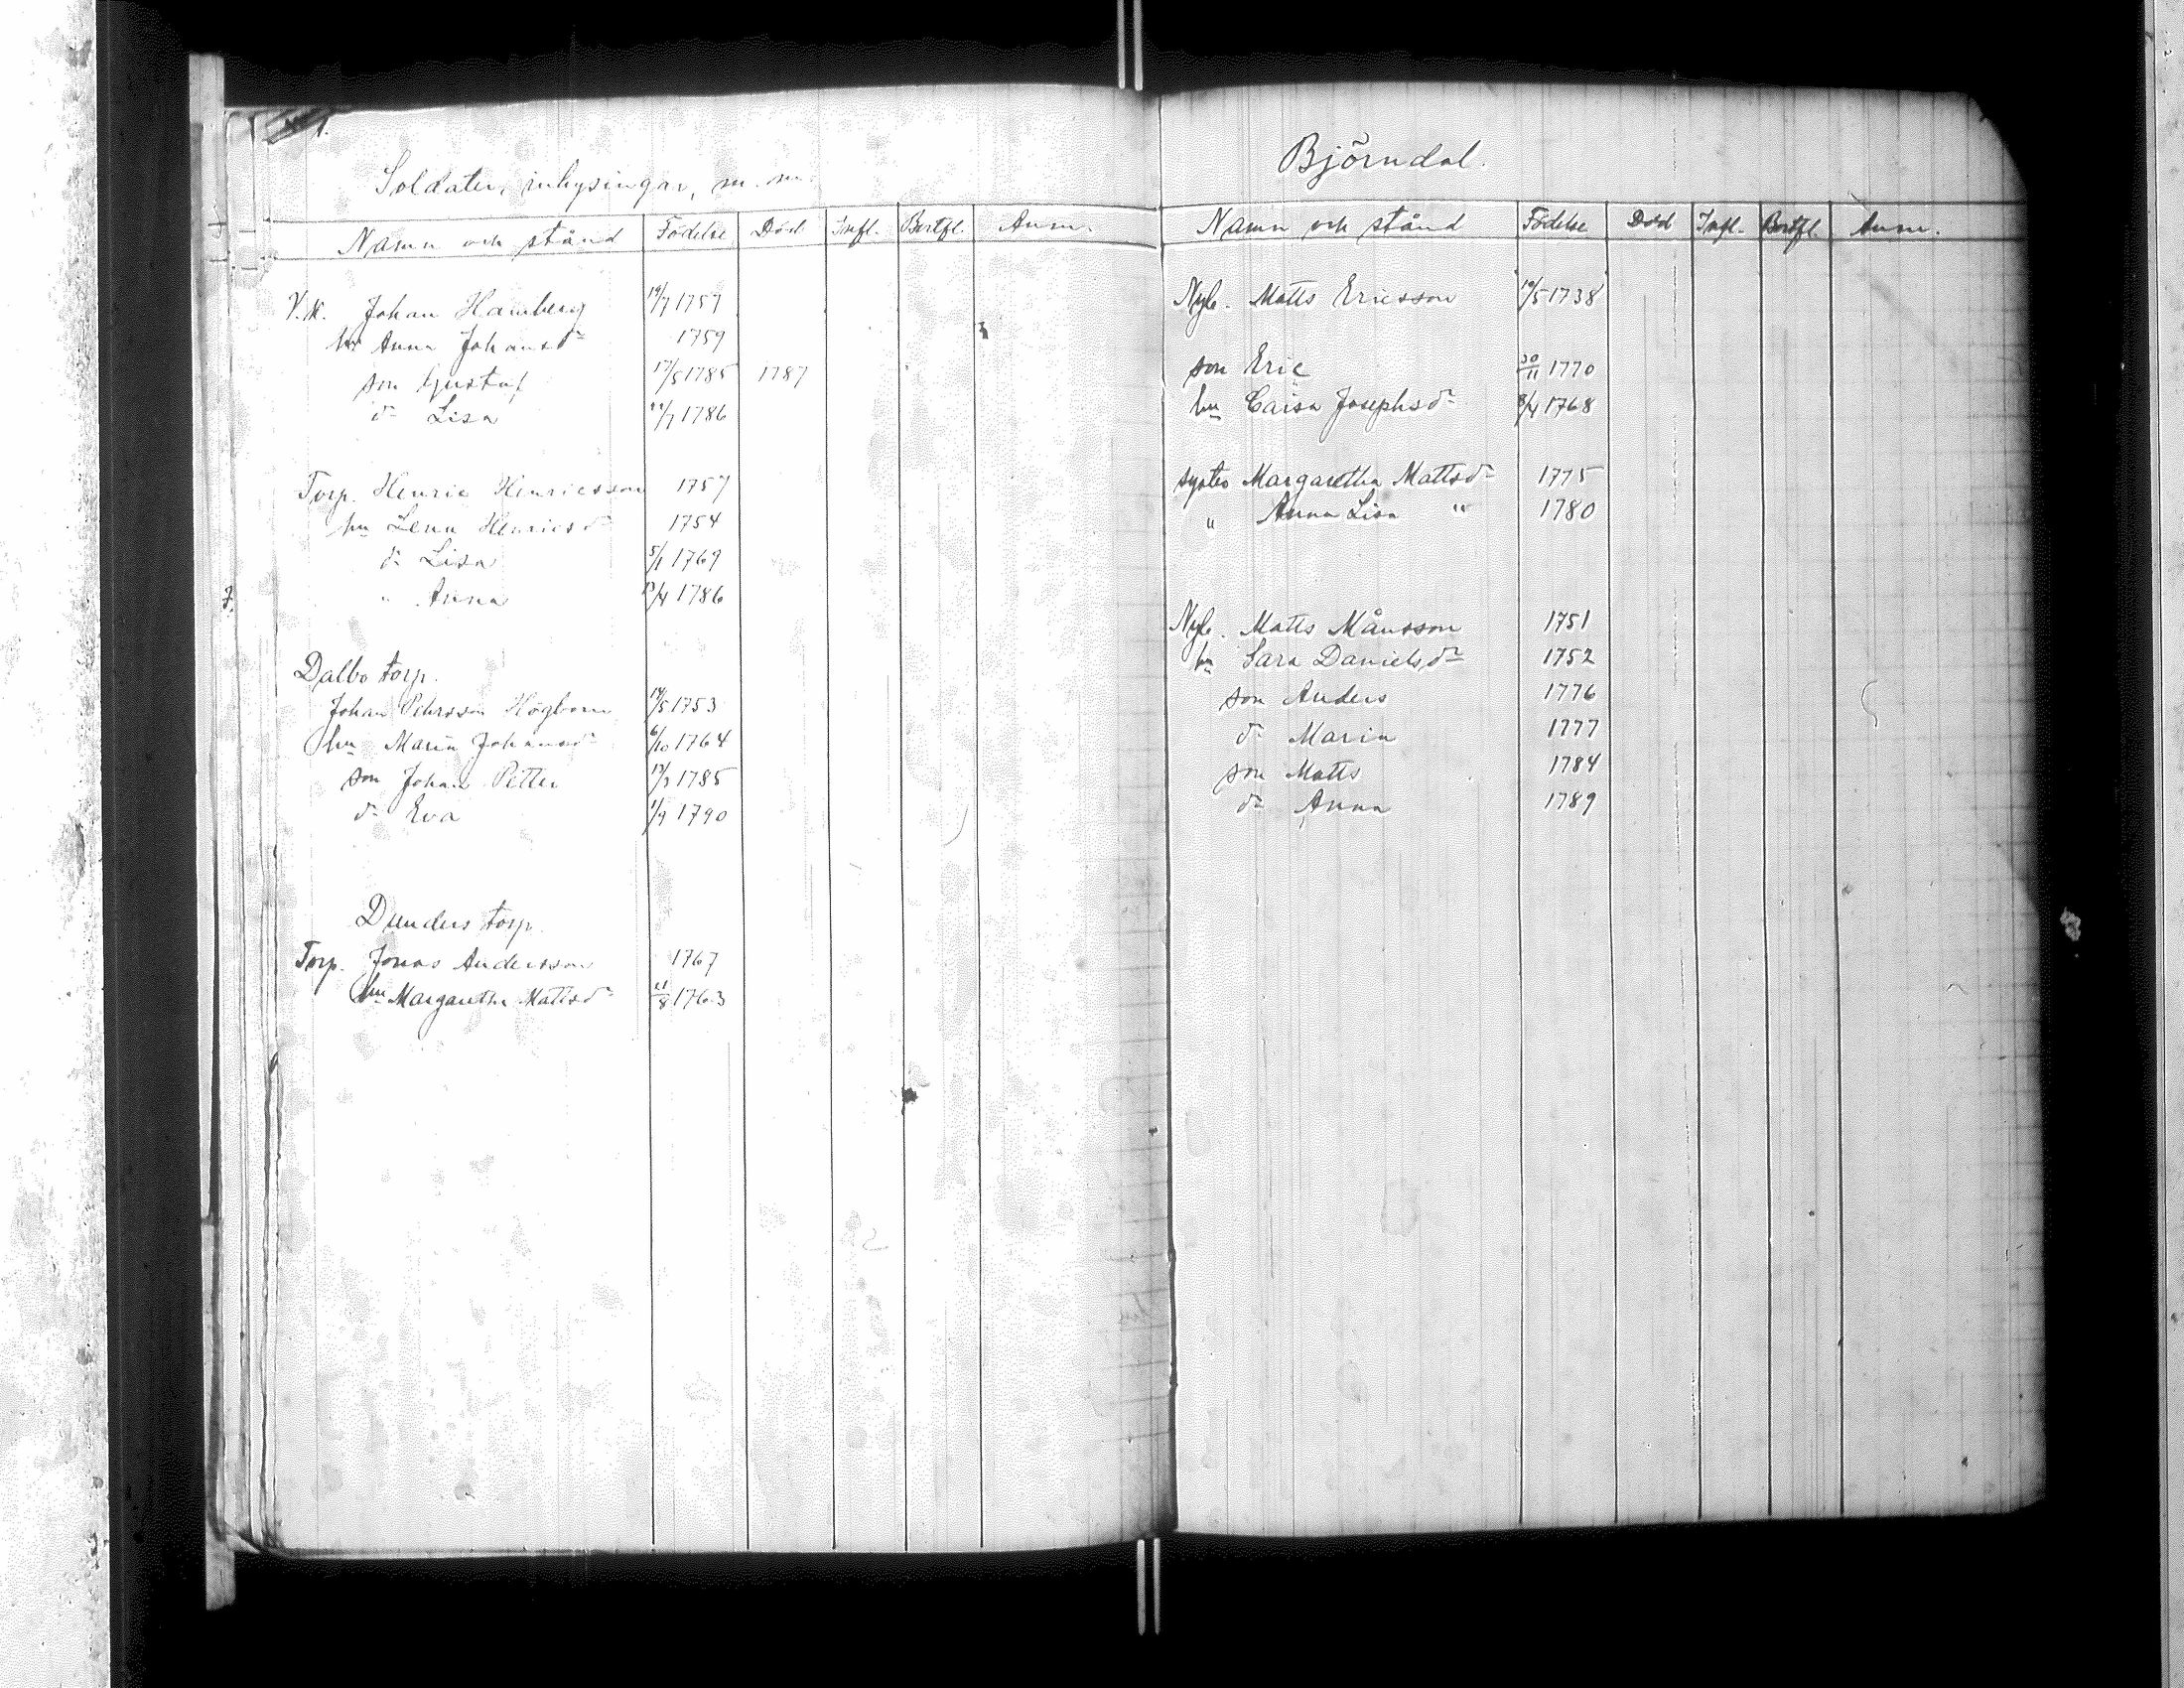 1.
Soldater, inhysingar, m. m.
Namn och stånd Födelse Död Infl. Bortfl. Anm.
V.M. Johan Hamberg 19/7 1757
hu Anna Johansdr 1759
son Gustaf 17/5 1785 1787
dr Lisa 22/7 1786
Torp. Henric Henricsson 1757
hu Lena Henricsdr 1754
dr Lisa 5/1 1769
" Anna 13/4 1786
Dalbo torp.
Johan Pehrsson Högbom 14/5 1753
hu Maria Johansdr 6/10 1764
son Johan Petter 17/3 1785
dr Eva 1/9 1790
Dunders torp.
Torp. Jonas Andersson 1767
hu Margaretha Mattsdr 21/8 1763
Björndal.
Namn och stånd Födelse Död Infl. Bortfl. Anm.
Nyb. Matts Ericsson 19/5 1738
son Eric 30/11 1770
hu Caisa Josephsdr 8/4 1768
syster Margaretha Mattsdr 1775
" Anna Lisa " 1780
Nyb. Matts Månsson 1751
hu Sara Danielsdr 1752
son Anders 1776
dr Maria 1777
son Matts 1784
dr Anna 1789